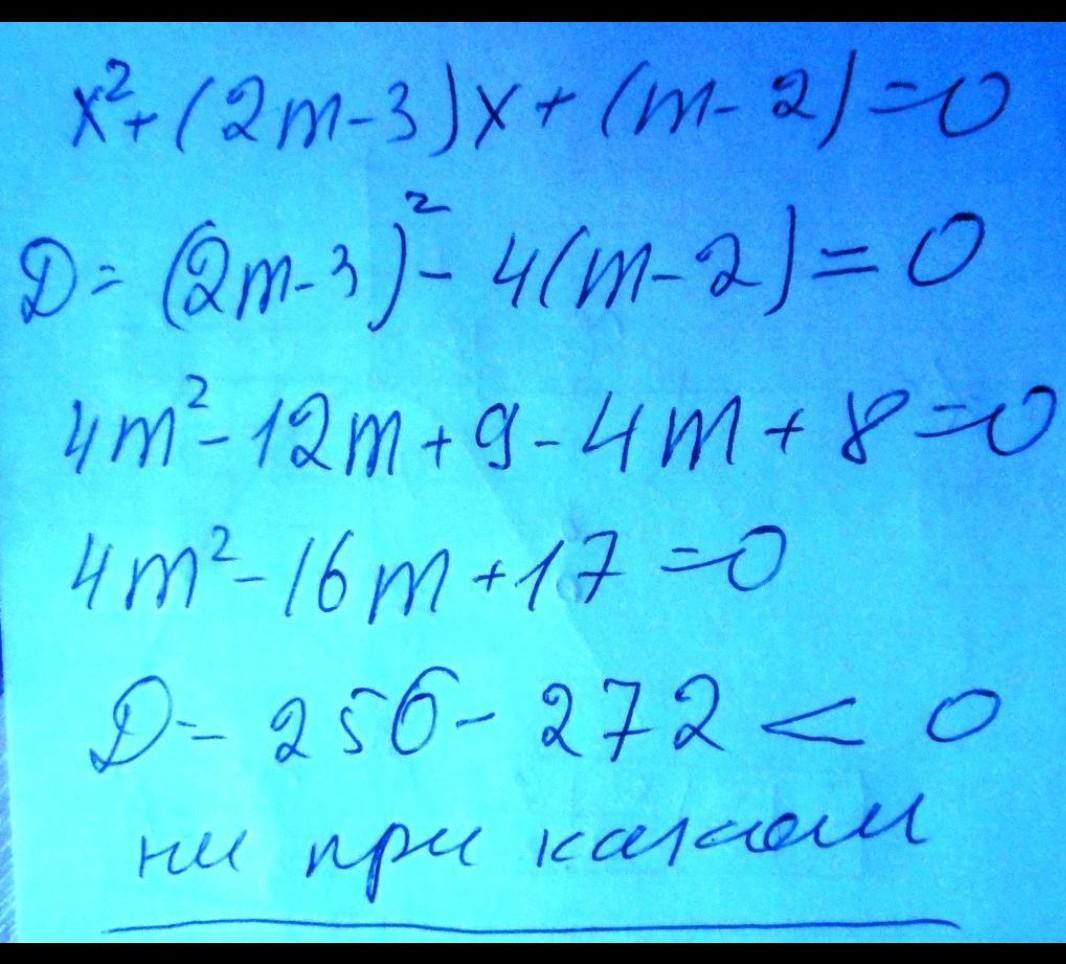 x²+(2m-3)x+(m-2)=0
D=(2m-3)²-4(m-2)=0
4m²-12m+9-4m+8=0
4m²-16m+17=0
D=256-272<0
ни при каком